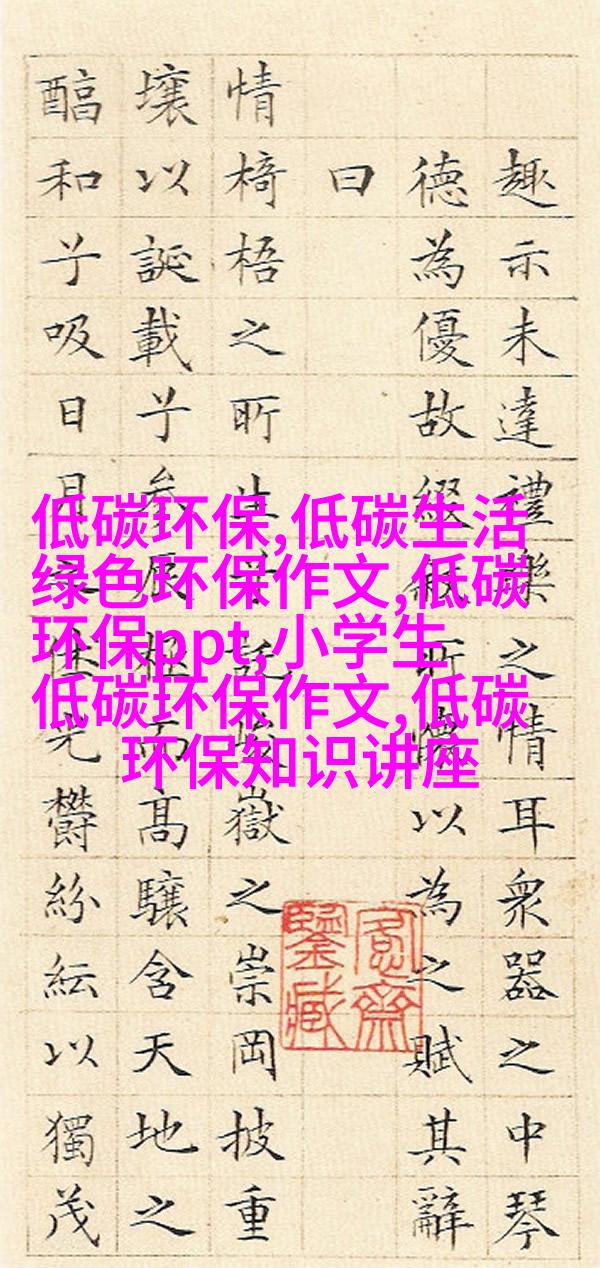 趣示未達禮樂之情耳衆器之中琴
德為優故綴叙所懷以為之賦其辭
曰
情椅梧之所生兮託峻嶽之崇岡披重
壤以誕載兮參辰極而高驤含天地之
醕和兮吸日月之休光欝紛紜以獨茂
低碳环保,低碳生活
绿色环保作文,低碳
环保ppt,小学生
低碳环保作文,低碳
环保知识讲座
愙齋
鑒藏